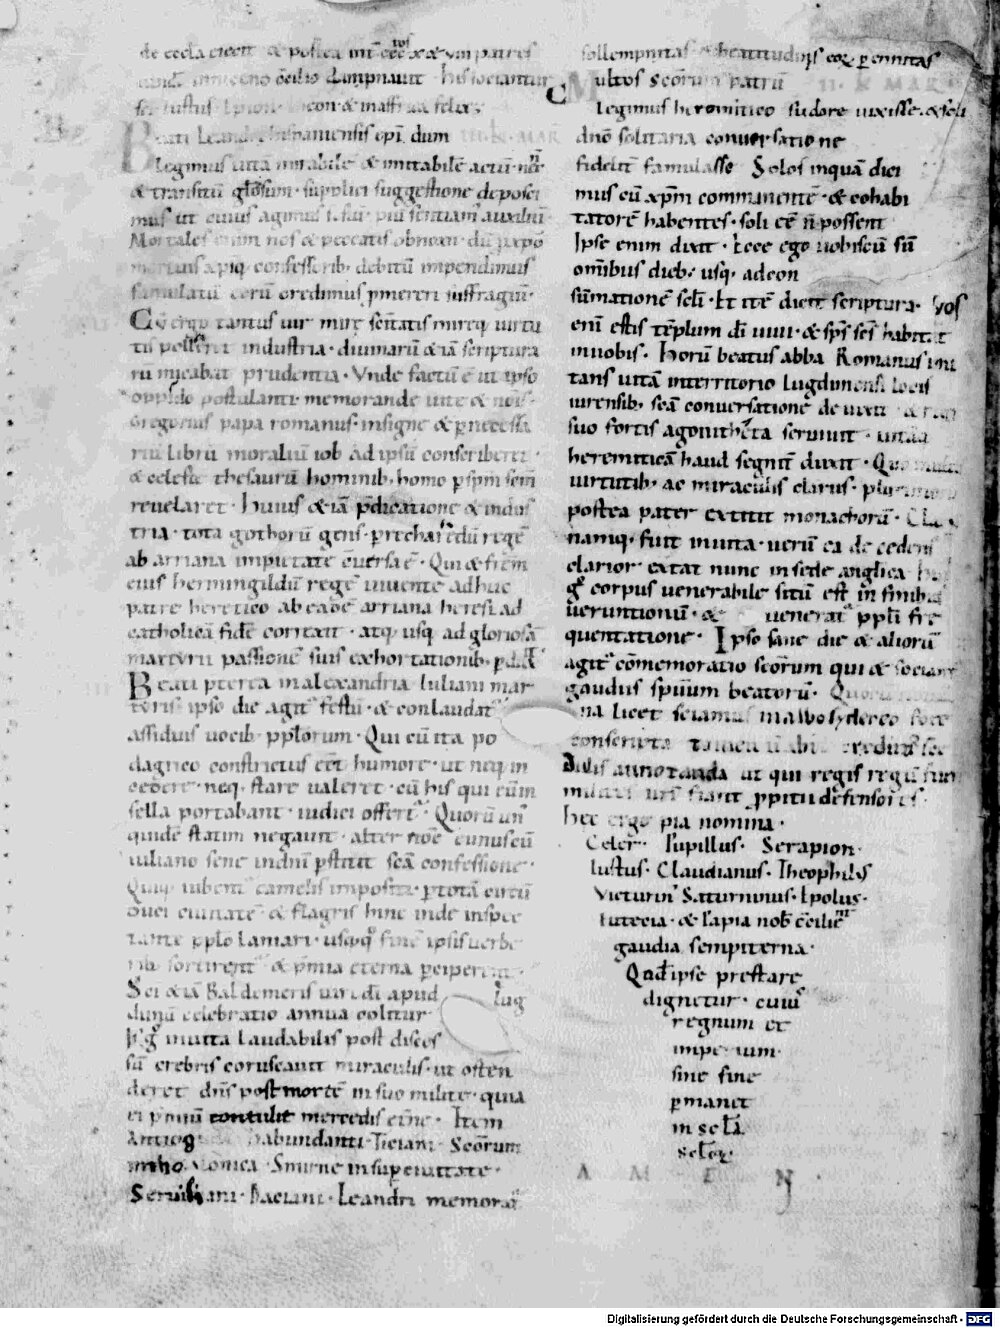 de eccla eiecit & postea int̄ ccc x & viii patres
niceno c̄cilio dampnauit his sociantur
Beati Leandri hispaniensis ep̄i dum
Legimus uitā mirabilē & imitabilē actū
& transitū gl̄osum supplici suggestione deposci
mus ut cuius agimus
Mortales enim nos & peccatis obnoxii dū p xp̄o
mortuis xp̄iq confessorib debitū impendimus
famulatū eorū credimus p̄mereri suffragiū
Cū ergo tantus uir mirę sc̄itatis miręq uirtu
tis polleret industria diuinarū & iā scriptura
rū prudentia Vnde factū ē ut ipso
oppido postulanti memorande uite &
Gregorius papa romanus insigne & p necessa
riū librū moraliū iob ad ipsū conscriberet
& celeste thesaurū hominib homo p sp̄m sc̄m
reuelaret Huius & iā p̄dicatione & indus
tria tota gothorū gens p recharedū regē
ab arriana impietate c̄uersa ē Qui & frēm
eius hermingildū regē uiuente adhuc
patre heretico ab eadē arriana heresi ad
catholicā fidē correxit atq usq ad gloriosā
martyrii passionē suis exhortationib p
Beati pterea in alexandria Iuliani mar
teris ipso die agit festū & conlaudat
assiduis uocib pplorum Qui cū ita po
dagrico constrictus eēt humore ut neq in
cedere neq stare ualeret cū his qui eūm
sella portabant iudici offert Quorū un
quidē statim negauit alter noē eunus cū
iuliano sene in dn̄i pstitit scā confessione
Quiq iubent camelis impositi p totā circū
duci ciuitatē & flagris hinc inde inspec
tante pplo laniari usq quo finē ipsis uerbe
rib sortirent & p̄mia eterna pciperent
Sci & iā Baldemeris uiri dī apud Lug
dunū celebratio annua colitur
Hic g̊ in uita laudabilis post disces
sū crebris coruscauit miraculis ut osten
deret dn̄s post mortē in suo milite quia
ei p̄miū contulit mercedis et̄ne Item
Antiog habundanti Ticiani Scōrum
Smirne in superiattate
Seruiliani Daciani Leandri memorat
sollempnitas & beatitudinis eoꝝ pennitas
Multos Scōrum patrū II K MAR
Legimus heremitico sudore uixisse & soli
dn̄o solitaria conuersatione
fidelit famulasse Solos inquā dici
mus cū xp̄m commanentē & cohabi
tatorē habentes soli eē n̄ possent
Ipse enim dixit Ecce ego uobiscū sū
om̄ibus dieb usq ad con
sūmationē scl̄i Et itē dicit scriptura Vos
enī estis tēplum dī uiui & sp̄s sc̄s habitat
in uobis Horū beatus abba Romanus imi
tans uitā in territorio lugdunensi locis
iurensib scā conuersatione deuixit
suo fortis agonitheta seruiuit uitā
heremiticā haud segnit duxit
uirtutib ac miraculis clarus plurimorū
postea pater extitit monachorū
namq fuit in uita uerū ea decedens
clarior extat nunc in sede anglica
g̊ corpus uenerabile sitū est in finibus
ueruntionū & uenerat ppli fre
quentatione Ipso sane die & aliorū
agit cōmemoratio scōrum qui & sociant
gaudiis sp̄uum beatorū Quorū nomi
na licet sciamus in albo sydereo fore
conscripta tamen u abi credim sce
dulis annotanda ut qui regis regū sunt
militari uri fiant ppitii defensores
hec ergo pia nomina
Celer Pupillus Serapion
Iustus Claudianus Theophilis
Victurin Saturninus Ipolus
Lutecia & Papia nob c̄cilient
gaudia sempiterna
Quod ipse prestare
dignetur cuius
regnum et
imperium
sine fine
p manet
in scl̄a
scl̄oꝝ
A M E N
Digitalisierung gefördert durch die Deutsche Forschungsgemeinschaft - DFG